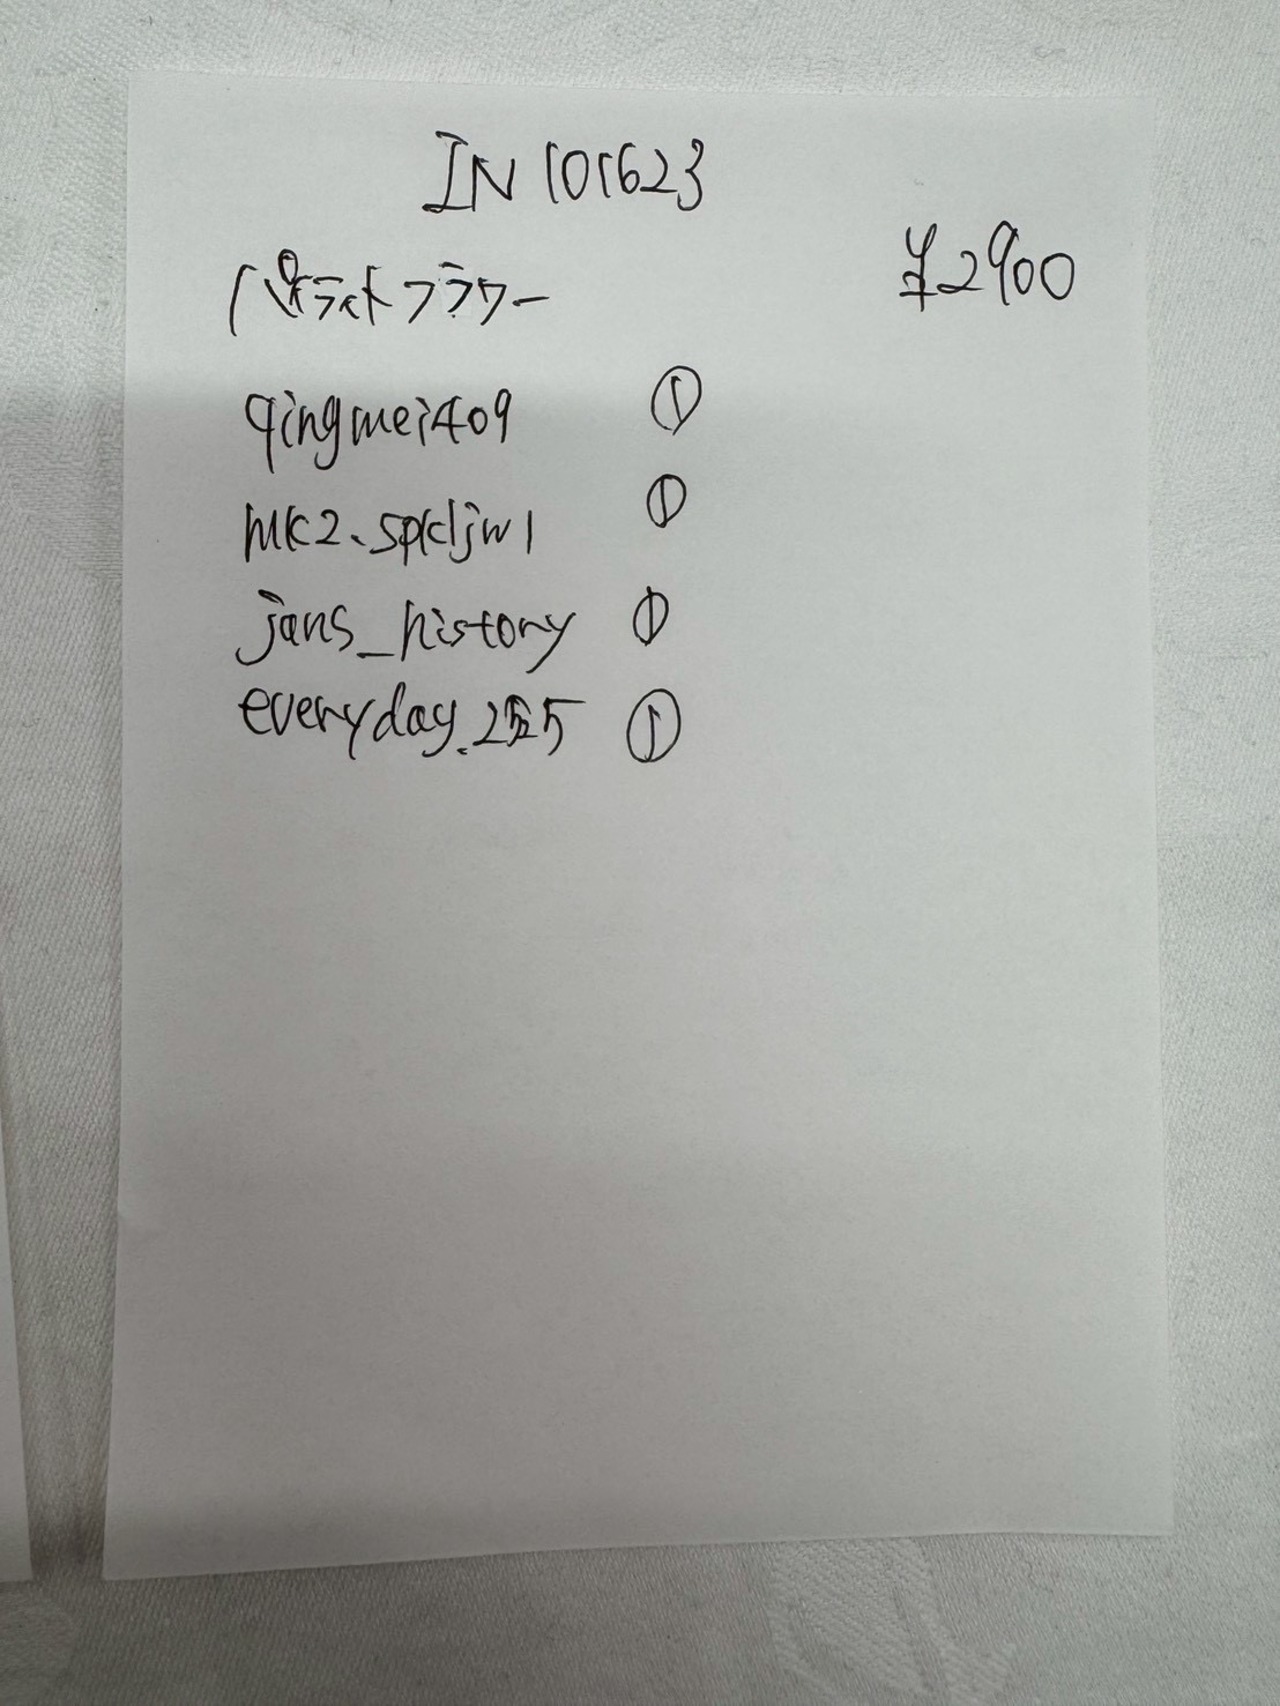 IN 101623
パライトフラワー
¥2900
qingmei409 ①
mk2.spkljw1 ①
jans_history ①
everyday. ①